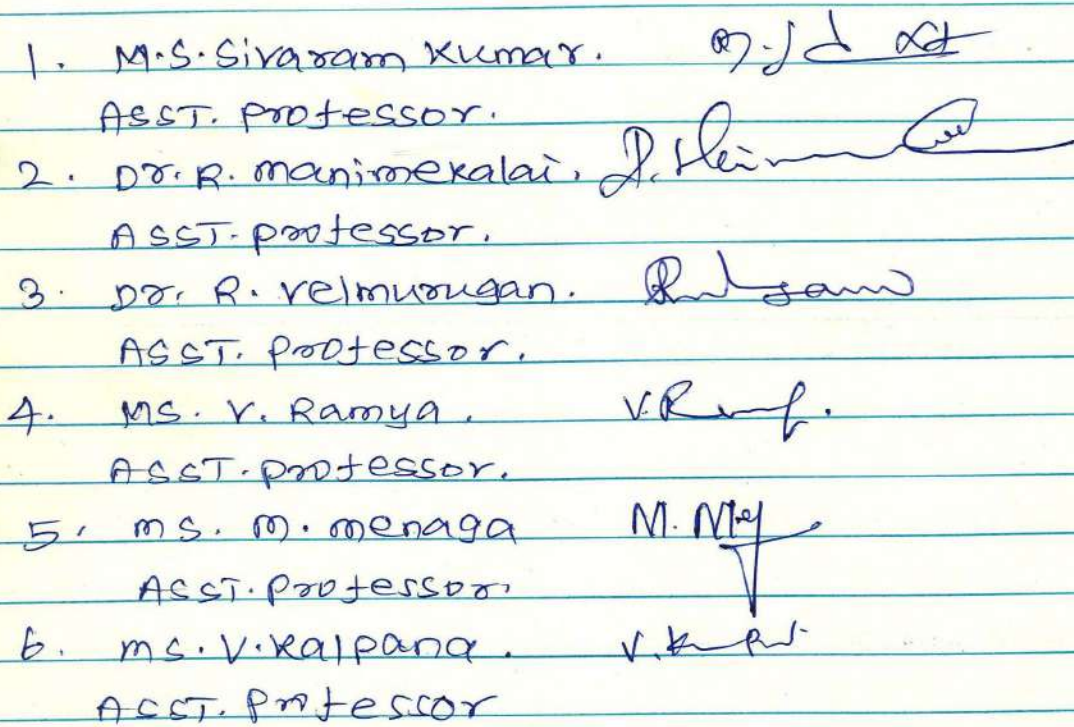 1. M.S. Sivaram Kumar.
Asst. Professor.
2. Dr. R. Manimekalai.
Asst. Professor.
3. Dr. R. Velmurugan.
Asst. Professor.
4. Ms. V. Ramya.
Asst. Professor.
5. Ms. M. Menaga
Asst. Professor.
6. Ms. V. Kalpana.
Asst. Professor